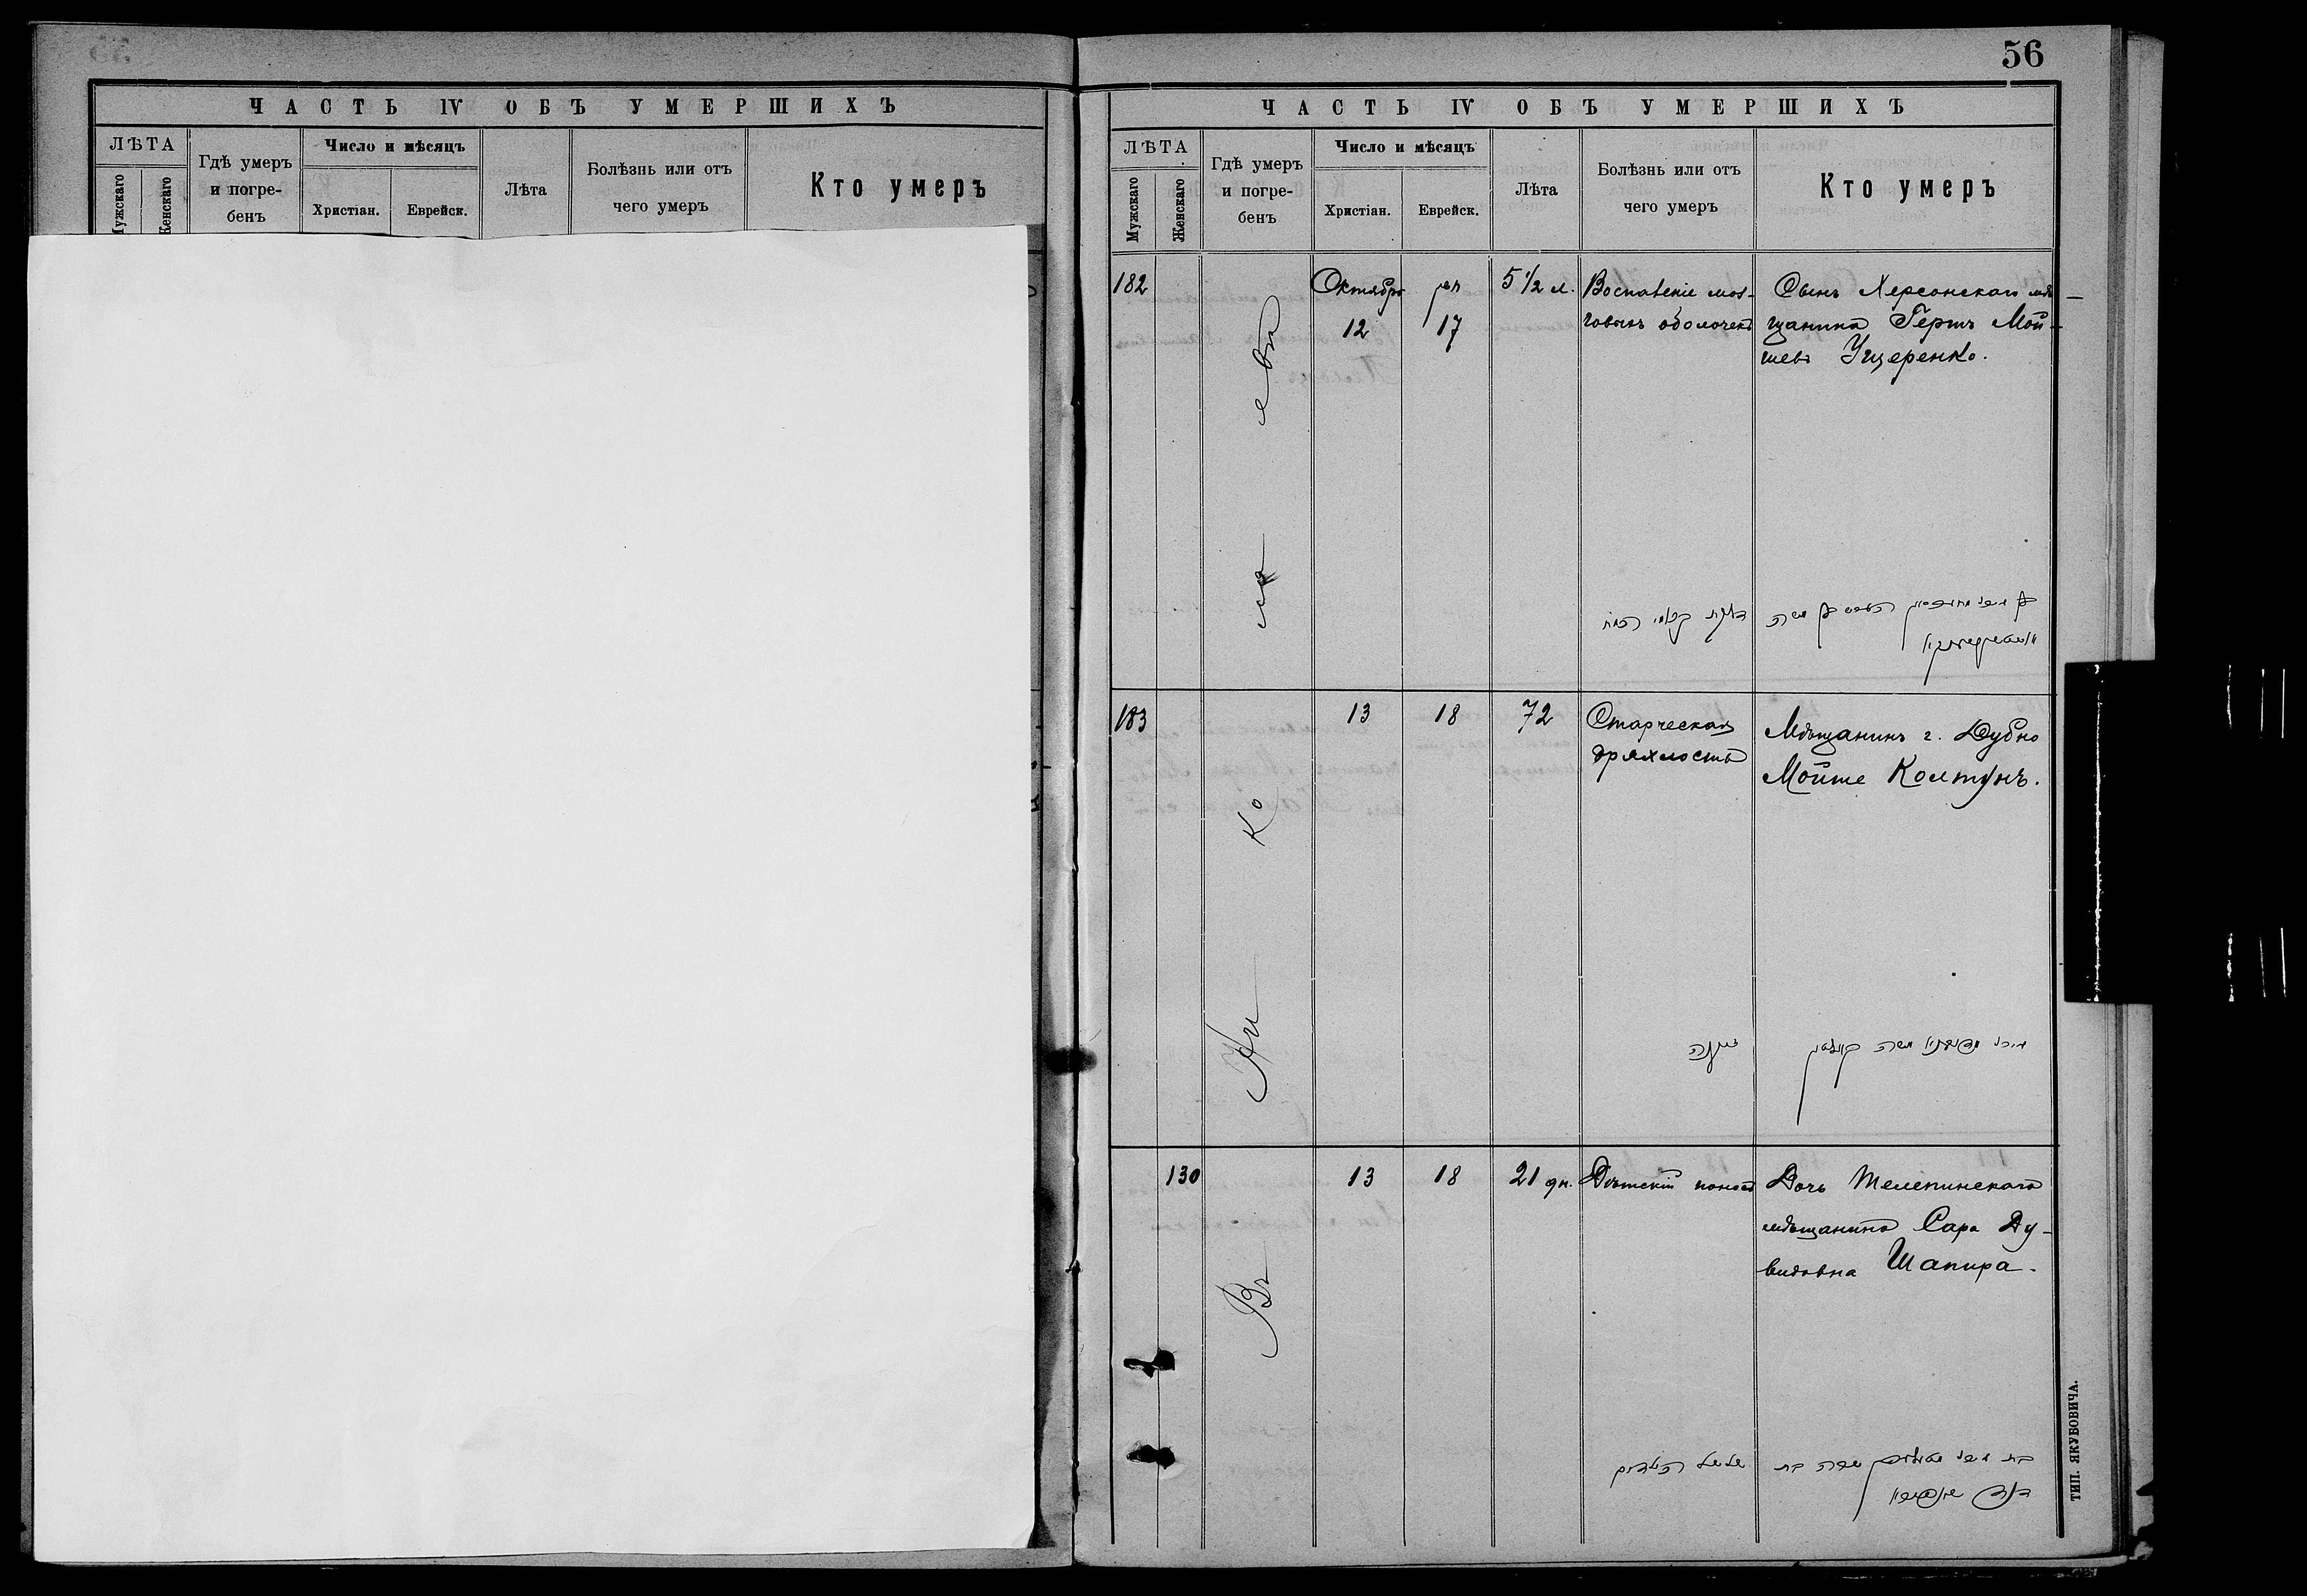 56
ЧАСТЬ IV ОБЪ УМЕРШИХЪ
ЛѢТА
Мужскаго
Женскаго
Гдѣ умеръ
и погре-
бенъ
Число и мѣсяцъ
Христіан.
Еврейск.
Лѣта
Болѣзнь или отъ
чего умеръ
Кто умеръ
ЧАСТЬ IV ОБЪ УМЕРШИХЪ
ЛѢТА
Мужскаго
Женскаго
Гдѣ умеръ
и погре-
бенъ
Число и мѣсяцъ
Христіан.
Еврейск.
Лѣта
Болѣзнь или отъ
чего умеръ
Кто умеръ
Въ Николаевѣ
182
Октября
12
17
5 1/2 л.
Воспаленіе моз-
говыхъ оболочекъ
Сынъ Херсонскаго мѣ-
щанина Гершъ Мой-
шевъ Ущеренко.
183
13
18
72
Старческая
дряхлость
זקנה
Мѣщанинъ г. Дубно
Мойше Колтунъ.
130
13
18
21 дн.
Дѣтскій поносъ
שלשול הילדים
Дочь Телепинскаго
мѣщанина Сара Ду-
видовна Шапира.
ТИП. ЯКУБОВИЧА.